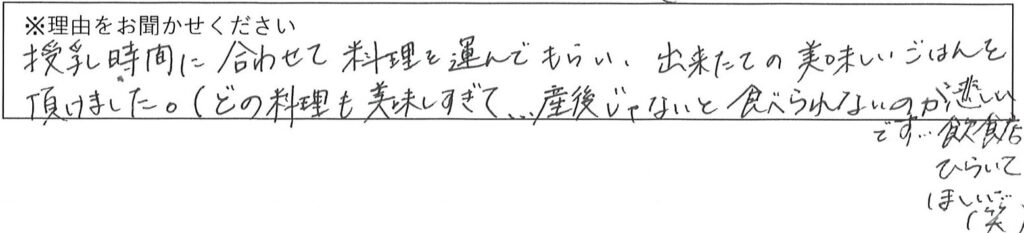 ※理由をお聞かせください
授乳時間に合わせて料理を運んでもらい、出来たての美味しいごはんを
頂けました。(どの料理も美味しすぎて…産後じゃないと食べられないのが悲しい
です…飲食店
ひらいて
ほしいです
(笑)